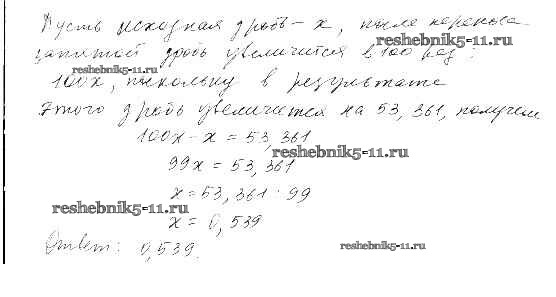 Пусть исходная дробь - x, после переноса
запятой дробь увеличится в 100 раз:
reshebnik5-11.ru
100x, поскольку в результате
этого дробь увеличится на 53,361, получем
100x - x = 53,361
reshebnik5-11.ru
99x = 53,361
x = 53,361 : 99
reshebnik5-11.ru
x = 0,539
Ответ: 0,539.
reshebnik5-11.ru